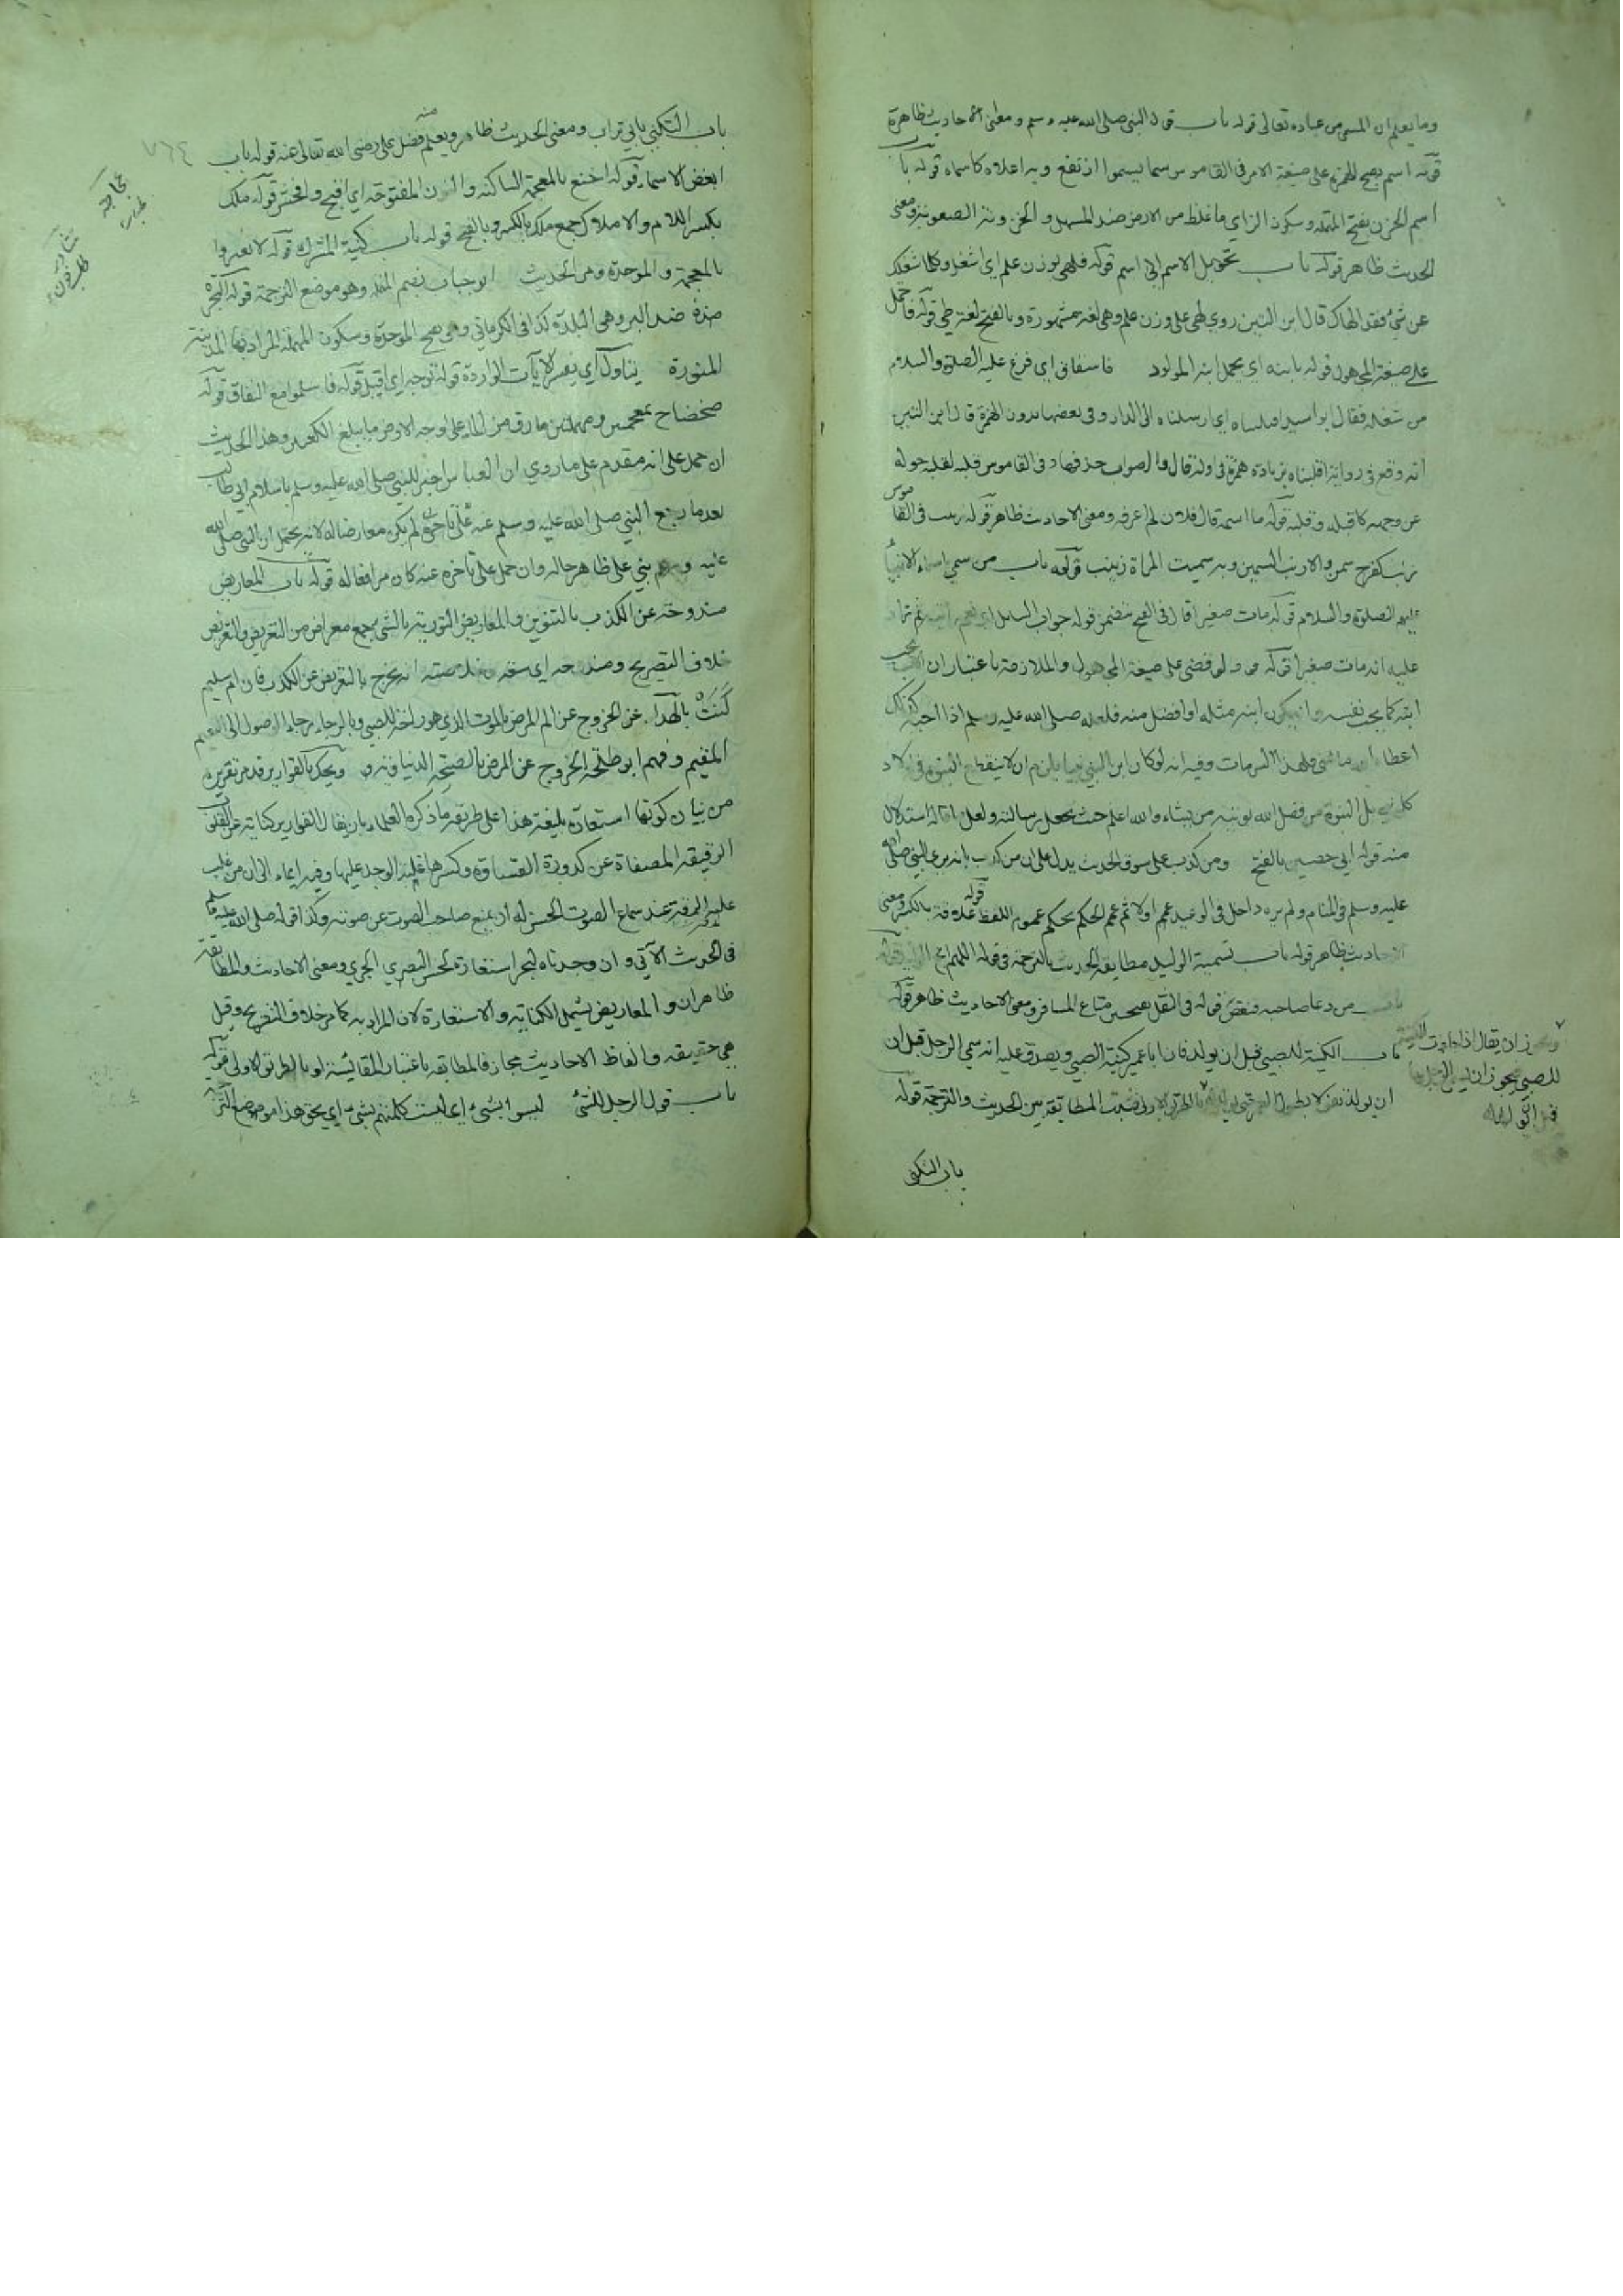 وما يعلم ان المسمى من عباده تعالى قوله باب قول النبي صلى الله عليه وسلم ومعنى الاحاديث ظاهرة
قوله اسم بفتح الهمزة على صيغة الامر في القاموس سما يسموا ارتفع وبه اعلاه كاسماه قوله باب
اسم الحزن بفتح المهملة وسكون الزاي ما غلظ من الارض ضد السهل والحزونة الصعوبة ومعنى
الحديث ظاهر قوله باب تحويل الاسم الى اسم قوله فلهى بوزن علم اي اشتغل وكلما شغلك
عن شئ فقد الهاك قال ابن التين روي لهى على وزن علم وهي لغة مشهورة وبالفتح لغة طي قوله فاحتمل
على صيغة المجهول قوله بابنه اي يحمل ابنه المولود فاستفاق اي فرغ عليه الصلوة والسلام
من شغله فقال ابو اسيد اقلبناه اي ارسلناه الى الدار وفي بعضها بدون الهمزة قال ابن التين
انه وقع في رواية اقلبناه بزيادة همزة في اوله قال والصواب حذفها وفي القاموس قلبه يقلبه حوله
عن وجهه كاقلبه وقلبه قوله ما اسمه قال فلان لم اعرفه ومعنى الاحاديث ظاهر قوله زينب في القاموس
زنب كفرح سمن والازنب السمين وبه سميت المراة زينب قوله باب من سمى باسماء الانبياء
عليهم الصلوة والسلام قوله مات صغيرا قال في الفتح تتضمن قوله جواب السائل اي نعم رايته ثم زاد
عليه انه مات صغيرا قوله ولو قضي على صيغة المجهول والملازمة باعتبار ان الاب يحب
ابنه كما يحب نفسه وان يكون ابنه مثله او افضل منه فلعله صلى الله عليه وسلم اذا احبه كذلك
اعطاه الله ما فلهذا مات وفيه انه لو كان ابن النبي نبيا يلزم ان لا ينقطع النبوة في اولاد
كل نبي بل النبوة من فضل الله يوتيه من يشاء والله اعلم حيث يجعل رسالته ولعل استدلال
منه قوله ابي حصين بالفتح ومن كذب على سوق الحديث يدل على ان من كذب بانه راى النبي صلى الله
عليه وسلم في المنام ولم يره داخل في الوعيد عمم اولا ثم عمم الحكم بحكم عموم اللفظ قوله علاقة بالكسر ومعنى
الاحاديث ظاهر قوله باب تسمية الوليد مطابقة الحديث بالترجمة في قوله اللهم انج الوليد قوله
باب من دعا صاحبه فنقص قوله في الثقل بفتحتين متاع المسافر ومعنى الاحاديث ظاهر قوله
باب الكنية للصبي قبل ان يولد فان ابا عمير كنية الصبي ويصدق عليه انه سمي الرجل قبل ان
ان يولد بالطريق الاولى فثبت المطابقة بين الحديث والترجمة قوله
ان يقال اذا جازت الكنية
للصبي يجوز ان
باب التكني
باب التكني بابي تراب ومعنى الحديث ظاهر ويعلم منه فضل علي رضي الله تعالى عنه قوله باب
ابغض الاسماء قوله اخنع بالمعجمة الساكنة والنون المفتوحة اي اقبح وافحش قوله ملك
بكسر اللام والاملاك جمع ملك بالكسر وبالفتح قوله باب كنية المشرك قوله لا تغبروا
بالمعجمة والموحدة ومن الحديث ابو حباب بضم المهملة وهو موضع الترجمة قوله البحرة
هذه ضد البر وهي البلدة كذا في الكرماني وهي بفتح الموحدة وسكون المهملة المراد بها المدينة
المنورة يتاول اي يفسر الايات الواردة قوله توجه اي اقبل قوله فاسلموا مع النفاق قوله
ضحضاح بمعجمتين ومهملتين ما رق من الماء على وجه الارض ما يبلغ الكعبين وهذا الحديث
ان حمل على انه مقدم على ما روي ان العباس اخبر للنبي صلى الله عليه وسلم باسلام ابي طالب
بعد ما رجع النبي صلى الله عليه وسلم عنه لم يكن معارضا له لانه يحتمل ان النبي صلى الله
عليه وسلم بني على ظاهر حاله وان حمل على تاخره عنه كان مرافعا له قوله باب المعاريض
مندوحة عن الكذب بالتنوين والمعاريض التورية بالشئ جمع معراض من التعريض والتعريض
خلاف التصريح ومندوحة اي سعة وخلاصته انه يخرج بالتعريض عن الكذب فان ام سليم
كنت بالهدأ عن الخروج عن الم المرض بالموت الذي هو راحة للصبي وبالرجاء رجاء الوصول الى النعيم
المقيم وفهم ابو طلحة الخروج عن المرض بالصحة الدنياوية ويحك بالقوارير قد مر تقريره
من بيان كونها استعارة بليغة هذا على طريقة ما ذكره العلماء بان يقال القوارير كناية عن القلوب
الرقيقة المصفاة عن كدورة القساوة وكسرها غلبة الوجد عليها وفيه ايماء الى ان من غلب
عليه الرقة عند سماع الصوت الحسن له ان يمنع صاحب الصوت عن صوته وكذا قوله صلى الله عليه وسلم
في الحديث الآتي وان وجدناه لبحرا استعارة لحسن البصري الجري ومعنى الاحاديث والمطابقة
ظاهران والمعاريض يشمل الكناية والاستعارة لان المراد به كما مر خلاف التصريح وقيل
هي حقيقة والفاظ الاحاديث مجاز فالمطابقة باعتبار المقايسة او بالطريق الاولى قوله
باب قول الرجل للشئ ليسوا بشئ اي ليست كلمتهم بشئ اي بحق هذا موضع الترجمة
٧٦٤